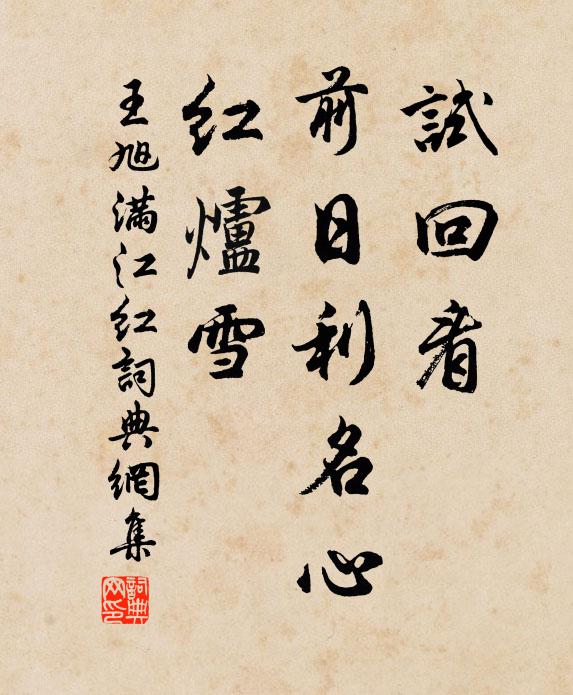 試回看
前日利名心
紅爐雪
王旭滿江紅詞典網集
詞典網印